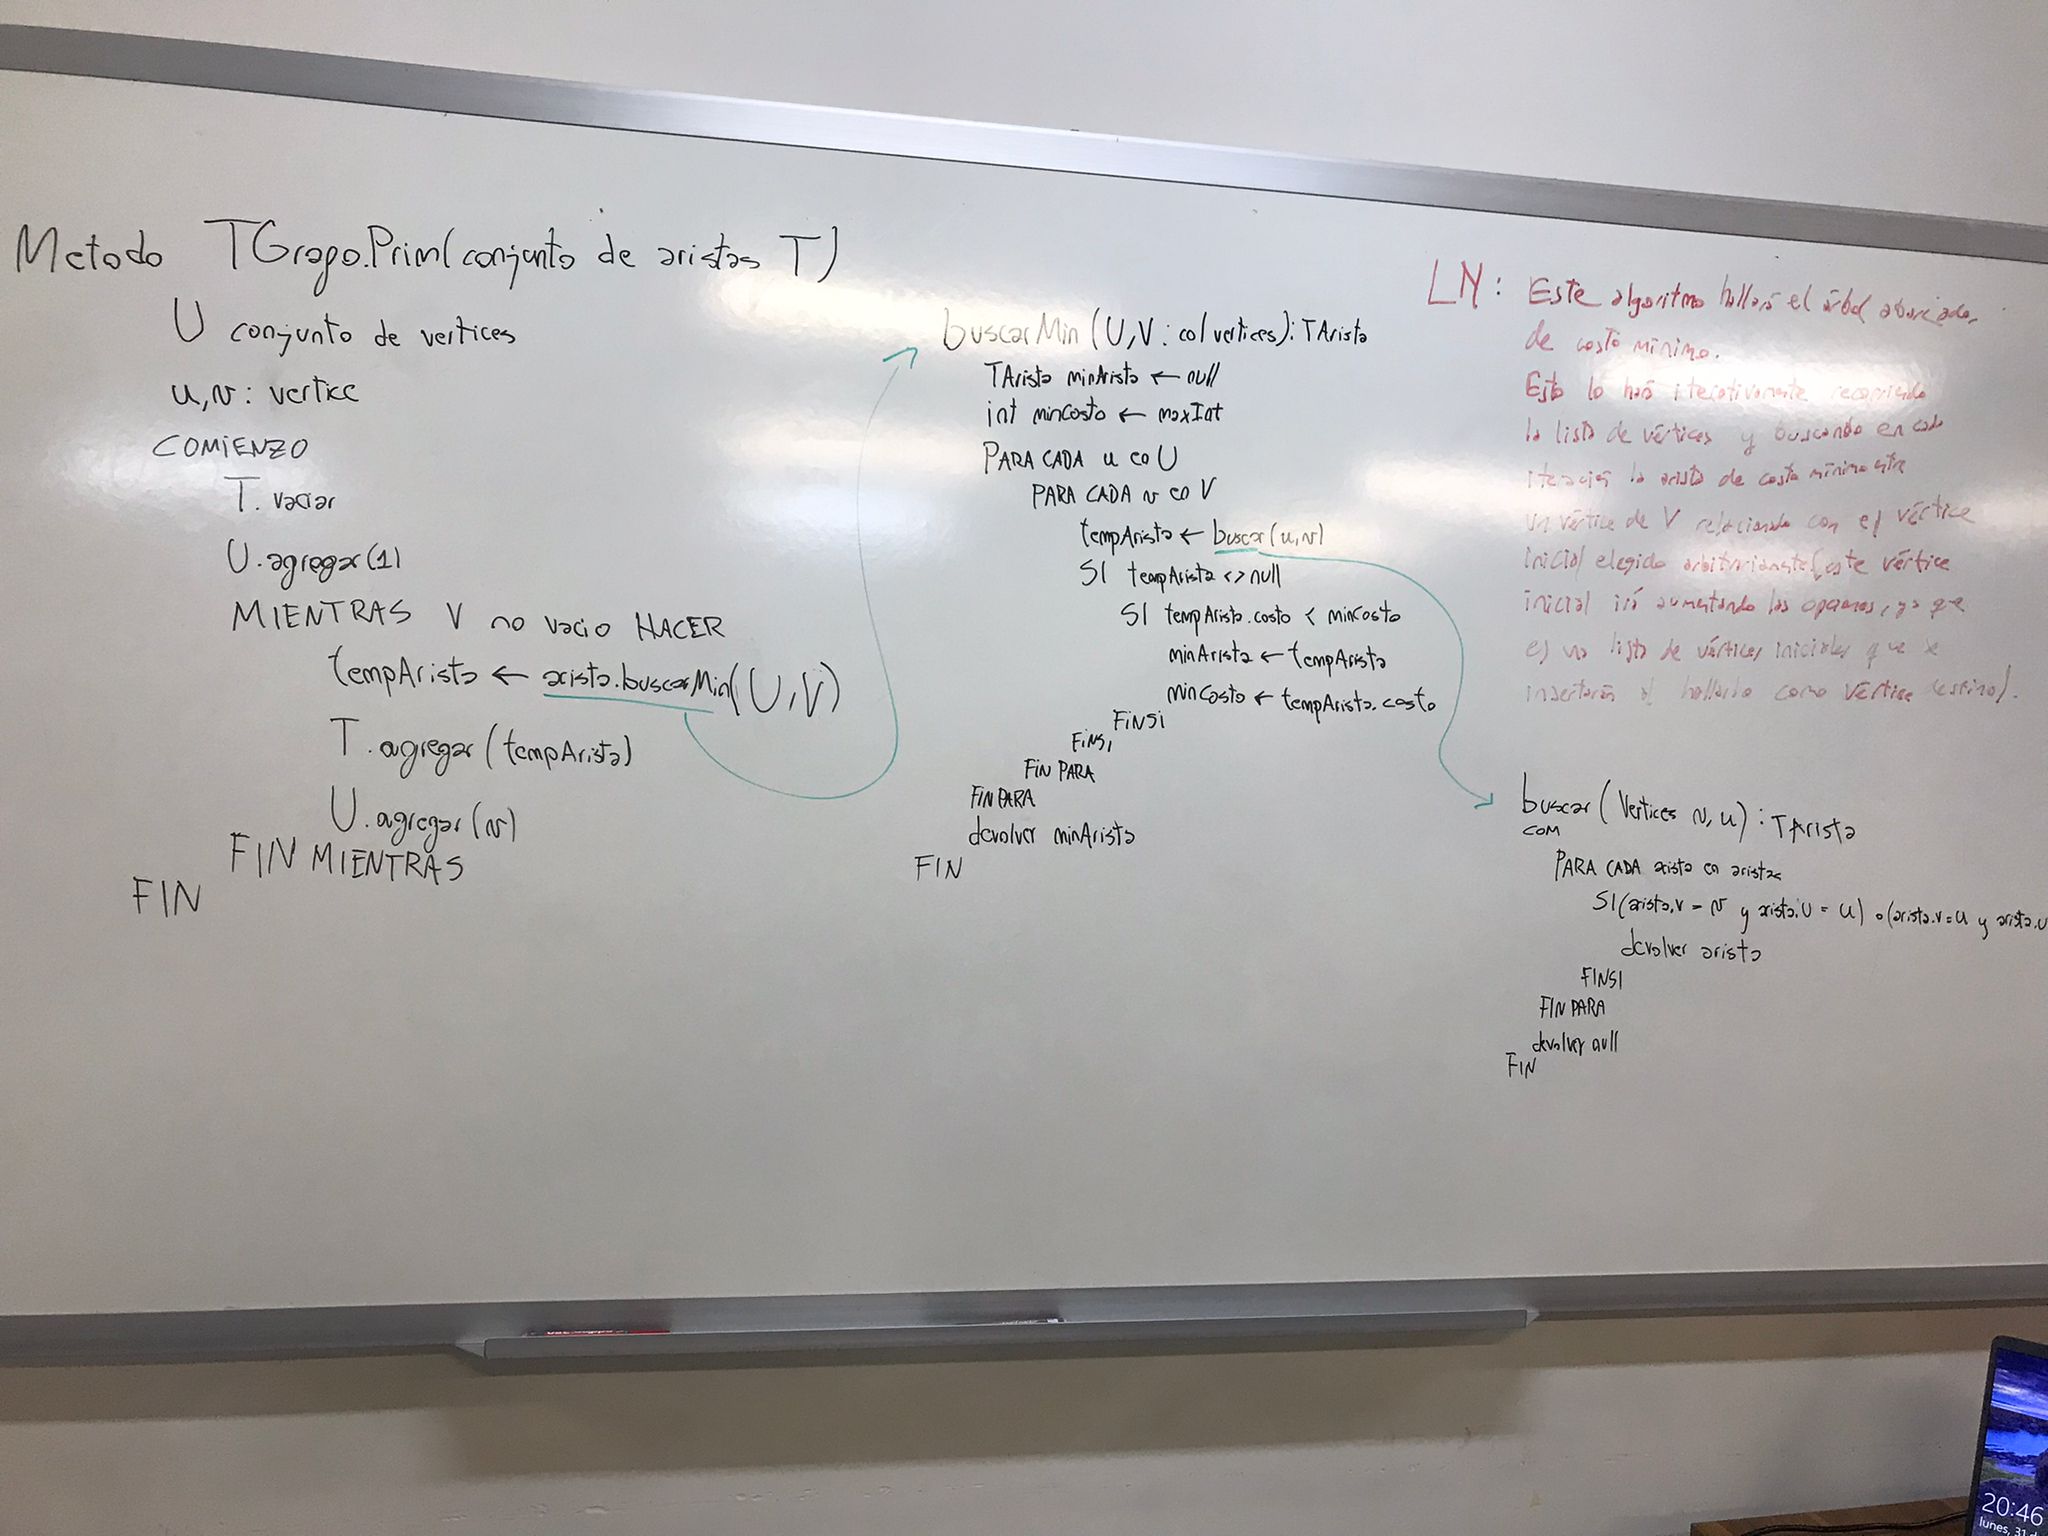 Metodo TGrapo.Prim(conjunto de aristas T)
U conjunto de vertices
u,v : vertice
COMIENZO
T. vaciar
U.agregar(1)
MIENTRAS V no vacio HACER
tempArista ← arista.buscarMin(U,V)
T.agregar(tempArista)
U.agregar(v)
FIN MIENTRAS
FIN
buscarMin (U,V : col vertices): TArista
TArista minArista ← null
int minCosto ← maxInt
PARA CADA u en U
PARA CADA v en V
tempArista ← buscar(u,v)
SI tempArista <> null
SI tempArista.costo < mincosto
minArista ← tempArista
minCosto ← tempArista.costo
FINSI
FINSI
FIN PARA
FIN PARA
devolver minArista
FIN
LN: Este algoritmo hallará el árbol abarcador
de costo mínimo.
Esto lo hará iterativamente recorriendo
la lista de vértices y buscando en cada
iteración la arista de costo mínimo entre
un vértice de V relacionado con el vértice
inicial elegido arbitrariamente (este vértice
inicial irá aumentando las opciones, ya que
es una lista de vértices iniciales que se
insertarán al hallarlo como vértice destino).
buscar (Vertices v,u) : TArista
COM
PARA CADA arista en aristas
SI(arista.v = v y arista.u = u) o (arista.v = u y arista.u
devolver arista
FINSI
FIN PARA
devolver null
FIN
20:46
lunes, 31 d